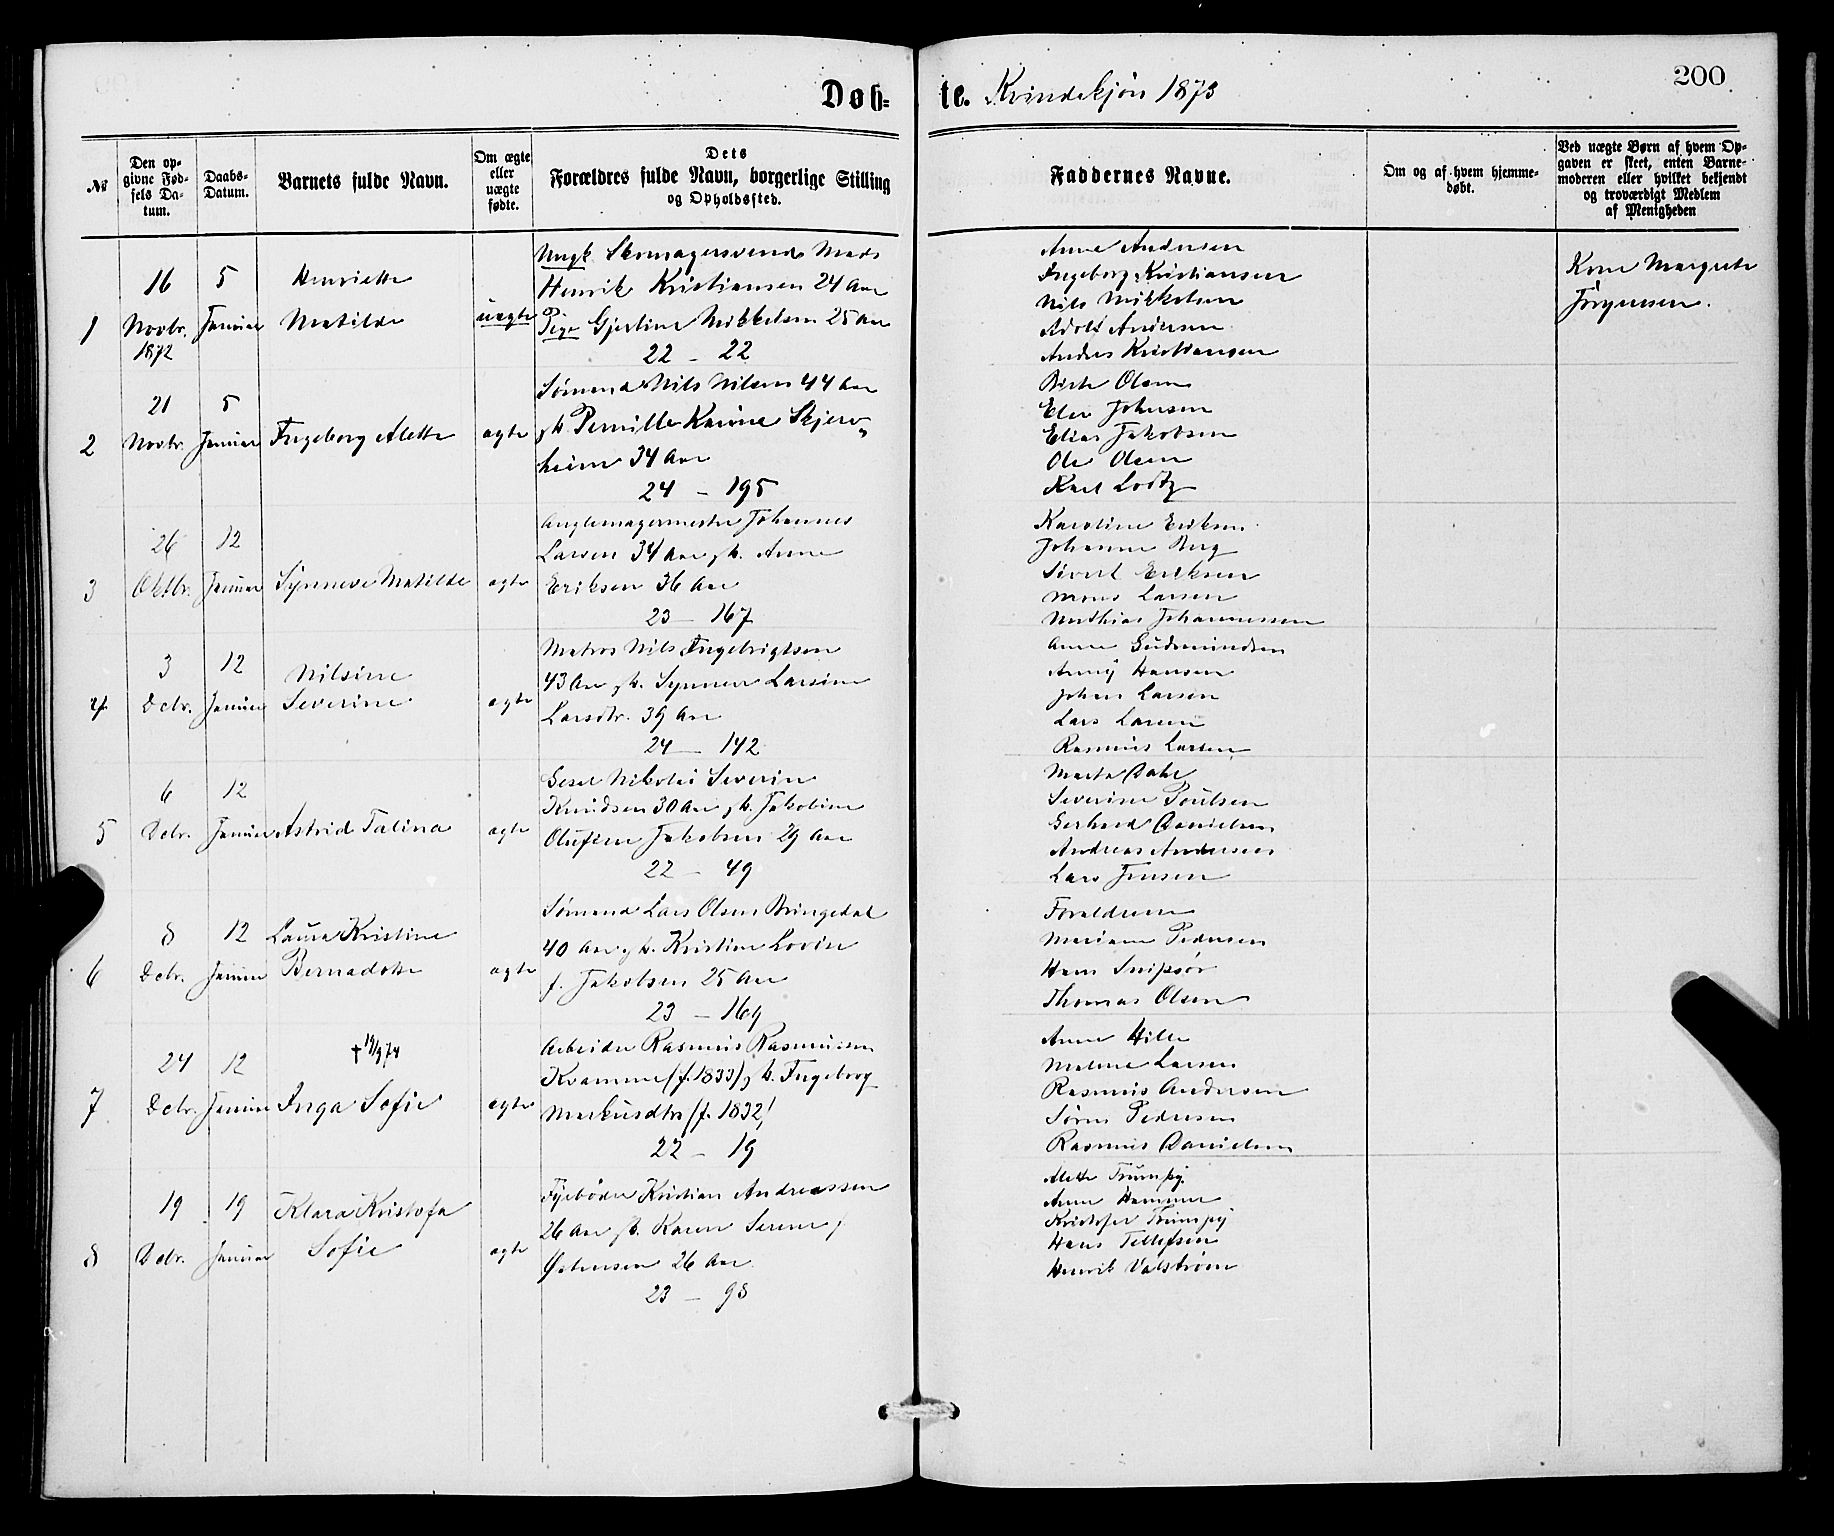 200.
Døb- te. Kvindekjøn 1873
№
Den op-
givne Fød-
sels Da-
tum.
Daabs-
Datum.
Barnets fulde Navn.
Om ægte
eller
uægte
fødte.
Dets
Forældres fulde Navn, borgerlige Stilling
og Opholdssted.
Faddernes Navne.
Om og af hvem hjemme-
døbt.
Ved uægte Børn af hvem Op-
gaven er skeet, enten Barne-
moderen eller hvilket bekjendt
og troværdigt Medlem
af Menigheden
1
16
Novbr.
1872
5
Januar
Henriette
Matilde
uægte
Ungk. Skomagersvend Mads
Henrik Kristiansen 24 Aar
Pige Gjertine Mikkelsen 25 Aar
22 - 22
Anne Andersen
Ingeborg Kristiansen
Nils Mikkelsen
Adolf Andersen
Andres Kristiansen
Kone Margrete
Jørgensen.
2
21
Novbr.
5
Januar
Ingeborg Alette
ægte
Sømand Nils Nilsen 44 Aar
gk. Pernille Karine Skjerv-
heim 34 Aar
24 - 195
Birte Olsen
Elen Johnsen
Elias Jakobsen
Ole Olsen
Karl Lodtz
3
26
Oktbr.
12
Januar
Synneve Matilde
ægte
Johannes
Larsen 34 Aar gk. Anne
Eriksen 36 Aar
23 - 167
Karoline Eriksen
Johanne Berg
Sivert Eriksen
Mons Larsen
Mathias Johannessen
4
3
Dcbr.
12
Januar
Nilsine
Severine
ægte
Matros Nils Ingebrigtsen
43 Aar gk. Synneve Larsine
Larsdtr. 39 Aar
24 - 142
Anne Gudmundsen
Anny Hansen
Johan Larsen
Lars Larsen
Rasmus Larsen
5
6
Dcbr.
12
Januar
Astrid Talina
ægte
Gesel Nikolai Severin
Knudsen 30 Aar gk. Jakobine
Olufine Jakobsen 29 Aar
22 - 49
Marta Dahl
Severine Poulsen
Gerhard Danielsen
Andreas Andersen
Lars Jensen
6
8
Dcbr.
12
Januar
Laura Kristine
Bernadotte
ægte
Sømand Lars Olsen Bringedal
40 Aar gk. Kristine Lovise
f. Jakobsen 25 Aar
23 - 169
Forældrene
Mariane Pedersen
Hans
Thomas Olsen
7
24
Dcbr.
12
Januar
† 19/9 74
Inga Sofie
ægte
Arbeider Rasmus Rasmussen
Kvamme (f. 1833) gk. Ingeborg
Markusdtr (f. 1832)
22 - 19
Anne Hille
Malene Larsen
Rasmus Andersen
Søren Pedersen
Rasmus Danielsen
8
19
Dcbr.
19
Januar
Klara Kristofa
Sofie
ægte
Fyrbøder Kristian Andreassen
26 Aar gk. Karen Serene f.
26 Aar
23 - 98
Alette Trumpy
Anne Hammer
Kristofer Trumpy
Hans Tellefsen
Henrik Valstrøm